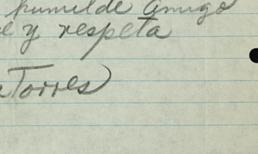 humilde amigo
e y respeta
Torres